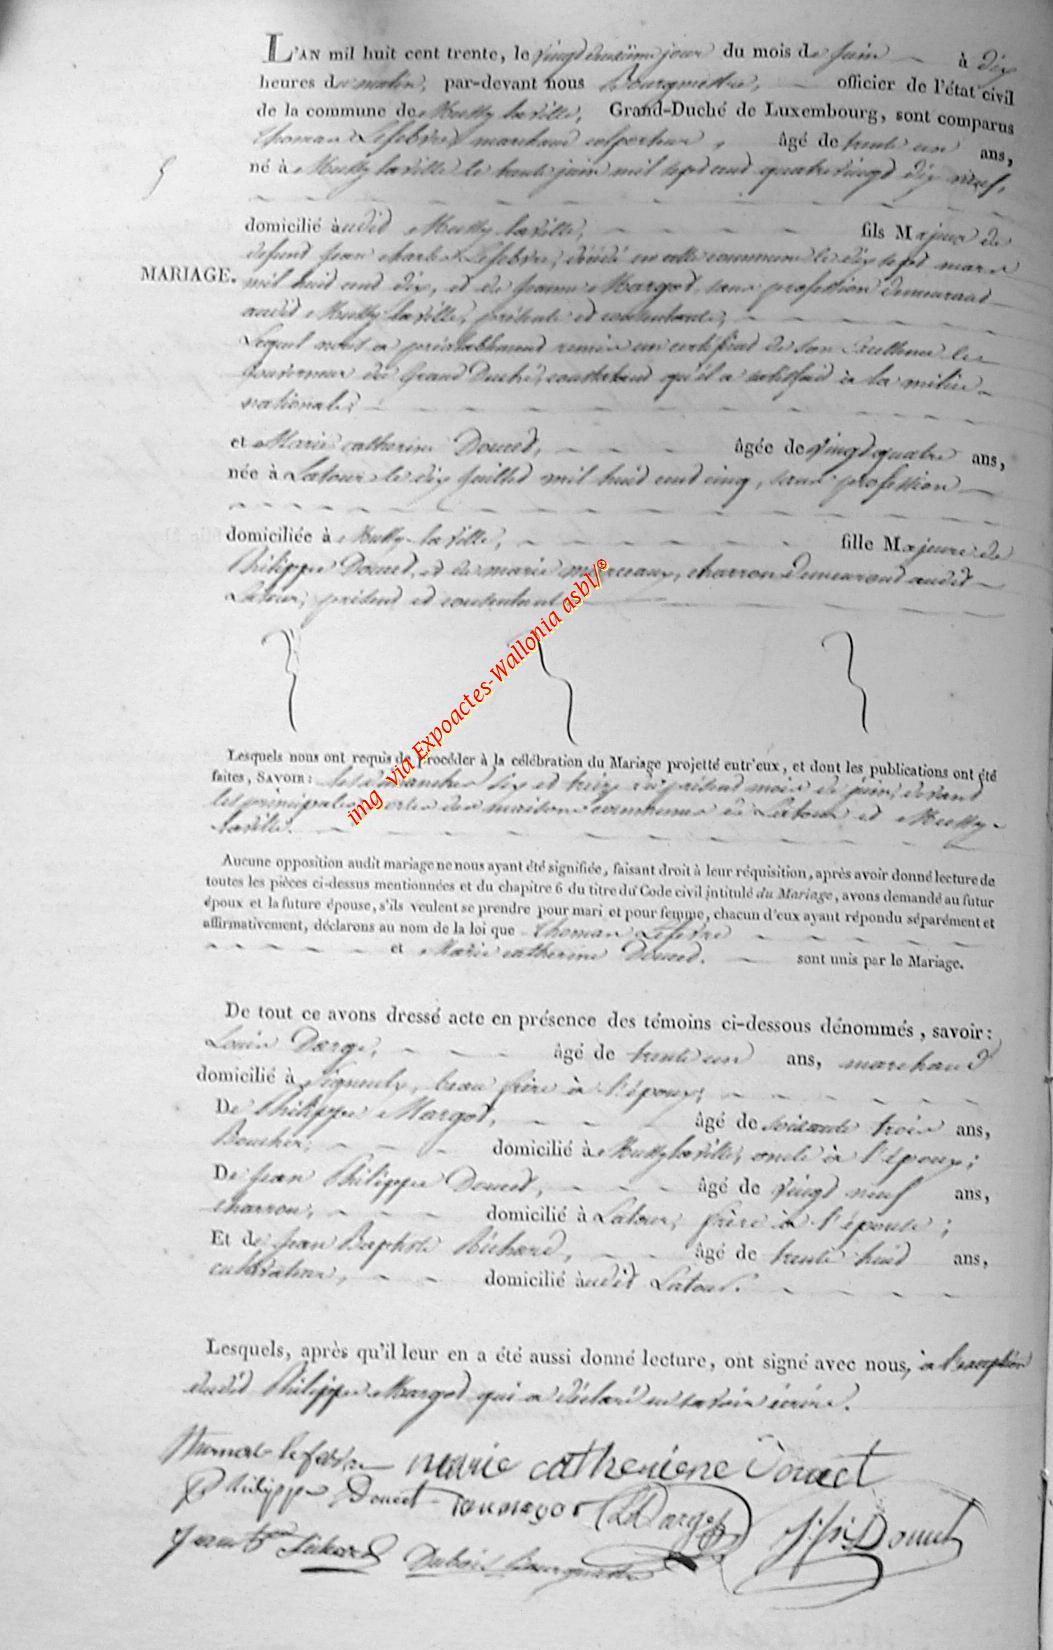 L'AN mil huit cent trente, le vingt deuxième jour du mois de Juin à dix
heures du matin, par-devant nous Bourgmestre, officier de l'état civil
de la commune de Mussy laville, Grand-Duché de Luxembourg, sont comparus
Thomas Lefebvre marchand colporteur, âgé de trente un ans,
né à Mussy laville le trente juin mil sept cent quatrevingt dix neuf,
domicilié audit Mussy laville, fils Majeur de
defunt Jean charles Lefebvre, décédé en cette commune le dix sept mars
MARIAGE.
mil huit cent dix, et de Jeanne Margot, sans profession demeurant
audit Mussy laville, présente et consentante,
Lequel nous a préalablement remis un certificat de son Excellence le
Gouverneur du Grand Duché, constatant qu'il a satisfait à la milice
nationale;
et Marie catherine Doucet, âgée de vingt quatre ans,
née à Latour le dix juillet mil huit cent cinq, sans profession
domiciliée à Mussy-la-ville, fille Majeure de
Philippe Doucet, et de marie marceaux, charron demeurant audit
Latour, présent et consentant
img via Expoactes-Wallonia asbl/®
Lesquels nous ont requis de procéder à la célébration du Mariage projetté entr'eux, et dont les publications ont été
faites, SAVOIR: les dimanches six et treize du présent mois de juin, devant
les principales portes des maisons communes de Latour et Mussy-
laville.
Aucune opposition audit mariage ne nous ayant été signifiée, faisant droit à leur réquisition, après avoir donné lecture de
toutes les pièces ci-dessus mentionnées et du chapitre 6 du titre du Code civil intitulé du Mariage, avons demandé au futur
époux et la future épouse, s'ils veulent se prendre pour mari et pour femme, chacun d'eux ayant répondu séparément et
affirmativement, déclarons au nom de la loi que Thomas Lefebvre
et Marie catherine Doucet. sont unis par le Mariage.
De tout ce avons dressé acte en présence des témoins ci-dessous dénommés, savoir:
Louis Darge, âgé de trente un ans, marchand
domicilié à Signeulx, beau frère à l'époux;
De Philippe Margot, âgé de soixante trois ans,
Boucher, domicilié à Mussy laville, oncle à l'époux;
De Jean Philippe Doucet, âgé de vingt neuf ans,
charron, domicilié à Latour, frère à l'épouse;
Et de Jean Baptiste Richard, âgé de trente huit ans,
cultivateur, domicilié audit Latour.
Lesquels, après qu'il leur en a été aussi donné lecture, ont signé avec nous, à l'exception
dudit Philippe Margot qui a déclaré ne savoir écrire.
Thomas lefebvre marie catheriene Doucet
Philippe Doucet L Darge J. Ph. Doucet
Jean B Richard Dubois Bourgmestre